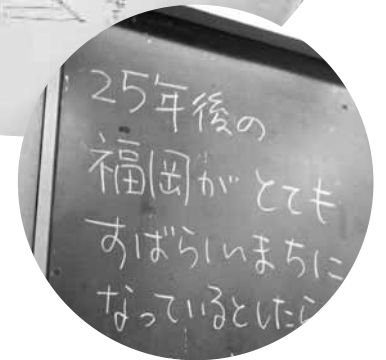 25年後の
福岡が とても
すばらしいまちに
なっているとしたら